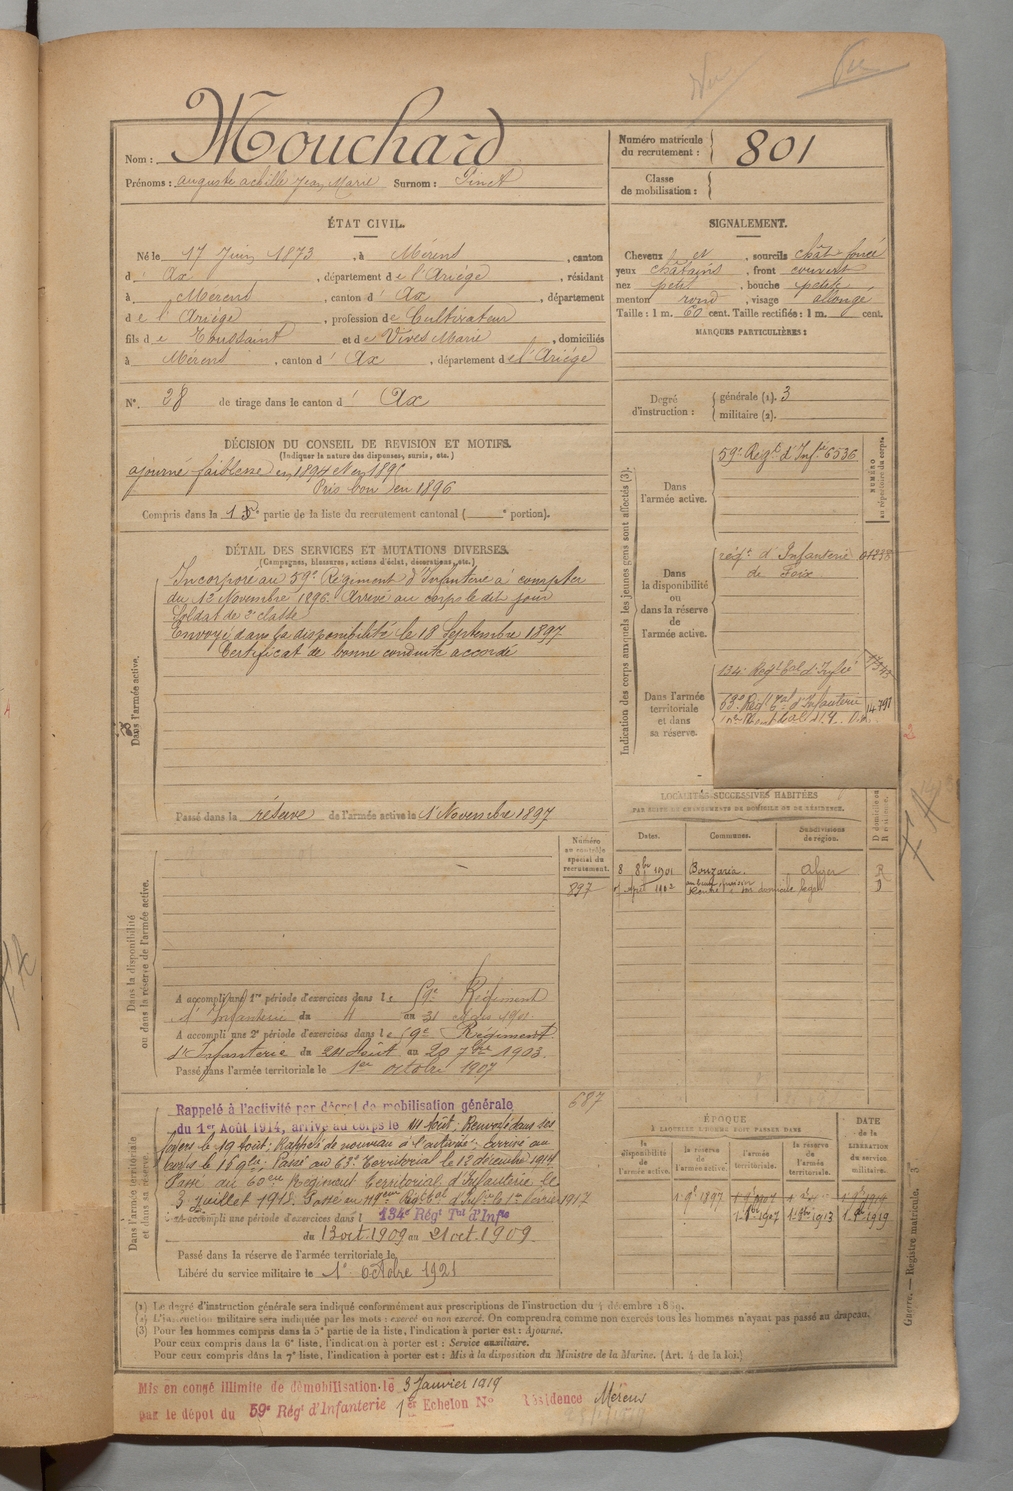 Nom : Mouchard
Prénoms : auguste achille Jean Marie Surnom : Pinet
Numéro matricule
du recrutement : 801
Classe
de mobilisation :
ÉTAT CIVIL.
Né le 17 Juin 1873, à Mérens, canton
d' Ax, département de l'Ariège, résidant
à Mérens, canton d' Ax, département
de l'Ariège, profession de Cultivateur
fils de Toussaint et de Vives Marie, domiciliés
à Mérens, canton d' Ax, département de l'Ariège
N° 28 de tirage dans le canton d' Ax
SIGNALEMENT.
Cheveux et, sourcils chât foncé
yeux châtains, front couvert
nez petit, bouche petite
menton rond, visage allongé
Taille : 1 m. 60 cent. Taille rectifiée : 1 m. cent.
MARQUES PARTICULIÈRES :
Degré
d'instruction :
générale (1). 3
militaire (2).
DÉCISION DU CONSEIL DE REVISION ET MOTIFS.
(Indiquer la nature des dispenses, sursis, etc.)
ajourné faiblesse en 1894 et en 1895
Pris bon en 1896
Compris dans la partie de la liste du recrutement cantonal ( e portion).
DÉTAIL DES SERVICES ET MUTATIONS DIVERSES.
(Campagnes, blessures, actions d'éclat, décorations, etc.)
Dans l'armée active.
Incorporé au 59e Régiment d'Infanterie à compter
du 12 Novembre 1896. Arrivé au corps le dit jour
Soldat de 2e classe
Envoyé dans la disponibilité le 18 Septembre 1897
Certificat de bonne conduite accordé
Passé dans la réserve de l'armée active le 1er Novembre 1897
Indication des corps auxquels les jeunes gens sont affectés (3).
Dans
l'armée active.
59e Régt d'Infie 6536
NUMÉRO
au répertoire du corps.
Dans
la disponibilité
ou
dans la réserve
de
l'armée active.
régt d'Infanterie
de Foix
Dans l'armée
territoriale
et dans
sa réserve.
134e Régt tal d'Infie
63e Régt Tal d'Infanterie 14.791
LOCALITÉS SUCCESSIVES HABITÉES
PAR SUITE DE CHANGEMENTS DE DOMICILE OU DE RÉSIDENCE.
Dates. Communes. Subdivisions
de région. D domicile ou
R résidence.
8 8bre 1901 Bouzaréa. Alger R
1902 son domicile légal D
Dans la disponibilité
ou dans la réserve de l'armée active.
Numéro
au contrôle
spécial du
recrutement.
897
A accompli une 1re période d'exercices dans le Régiment
d'Infanterie du 4 au 31
A accompli une 2e période d'exercices dans le 59e Régiment
d'Infanterie du 24 Août au 20 7bre 1903.
Passé dans l'armée territoriale le 1er octobre 1907
Dans l'armée territoriale
et dans sa réserve.
687
Rappelé à l'activité par décret de mobilisation générale
du 1er Août 1914, arrivé au corps le 14 Août ; Renvoyé dans ses
foyers le 19 Août ; Rappelé de nouveau à l'activité ; Arrivé au
corps le 16 9bre ; Passé au 63e Territorial le 12 décembre 1914
Passé au 60eme Régiment Territorial d'Infanterie le
3 Juillet 1915. Passé au 119eme Régt tal d'Infie le 1er février 1917
A accompli une période d'exercices dans l 134e Régt Tal d'Infie
du 13 oct. 1909 au 21 oct. 1909
Passé dans la réserve de l'armée territoriale le
Libéré du service militaire le 1er octobre 1921
ÉPOQUE
À LAQUELLE L'HOMME DOIT PASSER DANS
DATE
de la
LIBÉRATION
du service
militaire.
la
disponibilité
de l'armée active.
la réserve
de
l'armée active.
l'armée
territoriale.
la réserve
de
l'armée
territoriale.
1 9e 1897
1 8bre 1907 1 8bre 1913 1919
(1) Le degré d'instruction générale sera indiqué conformément aux prescriptions de l'instruction du 4 décembre 1889.
(2) L'instruction militaire sera indiquée par les mots : exercé ou non exercé. On comprendra comme non exercés tous les hommes n'ayant pas passé au drapeau.
(3) Pour les hommes compris dans la 5e partie de la liste, l'indication à porter est : Ajourné.
Pour ceux compris dans la 6e liste, l'indication à porter est : Service auxiliaire.
Pour ceux compris dans la 7e liste, l'indication à porter est : Mis à la disposition du Ministre de la Marine. (Art. 4 de la loi.)
Guerre. — Registre matricule.
Mis en congé illimité de démobilisation le 3 Janvier 1919
par le dépôt du 59e Régt d'Infanterie 1er Echelon N° Résidence Mérens